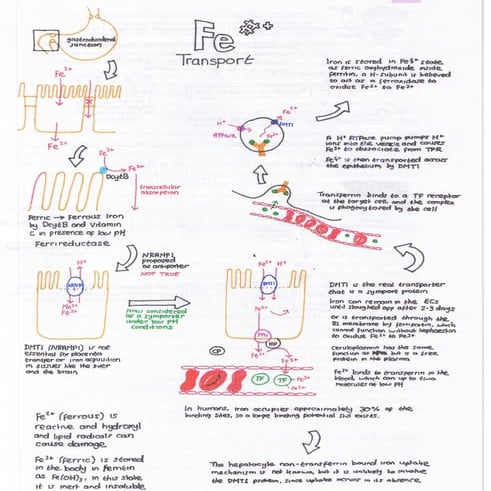 gastroduodenal
junction
Fe
Transport
Fe²⁺
Fe²⁺
Fe²⁺
Fe³⁺
DcytB
transcellular
absorption
Ferric → Ferrous Iron
by DcytB and Vitamin
C in presence of low pH
Ferrireductase
Iron is stored in Fe³⁺ state
as ferric oxyhydroxide inside
ferritin, a H-subunit is believed
to act as a ferroxidase to
oxidise Fe²⁺ to Fe³⁺
H⁺
ATPase
Fe²⁺
DMT1
Fe³⁺
A H⁺ ATPase pump pumps H⁺
ions into the vesicle and causes
Fe³⁺ to dissociate from TFR.
Fe³⁺ is then transported across
the epithelia by DMT1
Transferrin binds to a TF receptor
at the target cell and the complex
is phagocytosed by the cell
NRAMP1
proposed
as antiporter
NOT TRUE
H⁺
Fe²⁺
Now considered
as a symporter
under low pH
conditions
Fe²⁺
H⁺
DMT1
Fe²⁺
Fe²⁺
CP
HP
Fe³⁺
TF
TF
Fe³⁺
Fe³⁺
DMT1 (NRAMP1) is not
essential for placental
transfer or iron acquisition
in tissues like the liver
and the brain.
DMT1 is the real transporter
that is a symport protein
Iron can remain in the ECs
until sloughed off after 2-3 days
or is transported through the
BL membrane by ferroportin, which
cannot function without hephaestin
to oxidise Fe²⁺ to Fe³⁺
Ceruloplasmin has the same
function as but is a free
protein in the plasma
Fe³⁺ binds to transferrin in the
blood, which can up to two
molecules at low pH
In humans, iron occupies approximately 30% of the
binding sites, so a large binding potential still exists.
Fe²⁺ (ferrous) is
reactive and hydroxyl
and lipid radicals can
cause damage.
Fe³⁺ (ferric) is stored
in the body in ferritin
as Fe(OH)₃, in this state
it is inert and insoluble
The hepatocyte non-transferrin bound iron uptake
mechanism is not known, but it is unlikely to involve
the DMT1 protein, since uptake occurs in its absence.